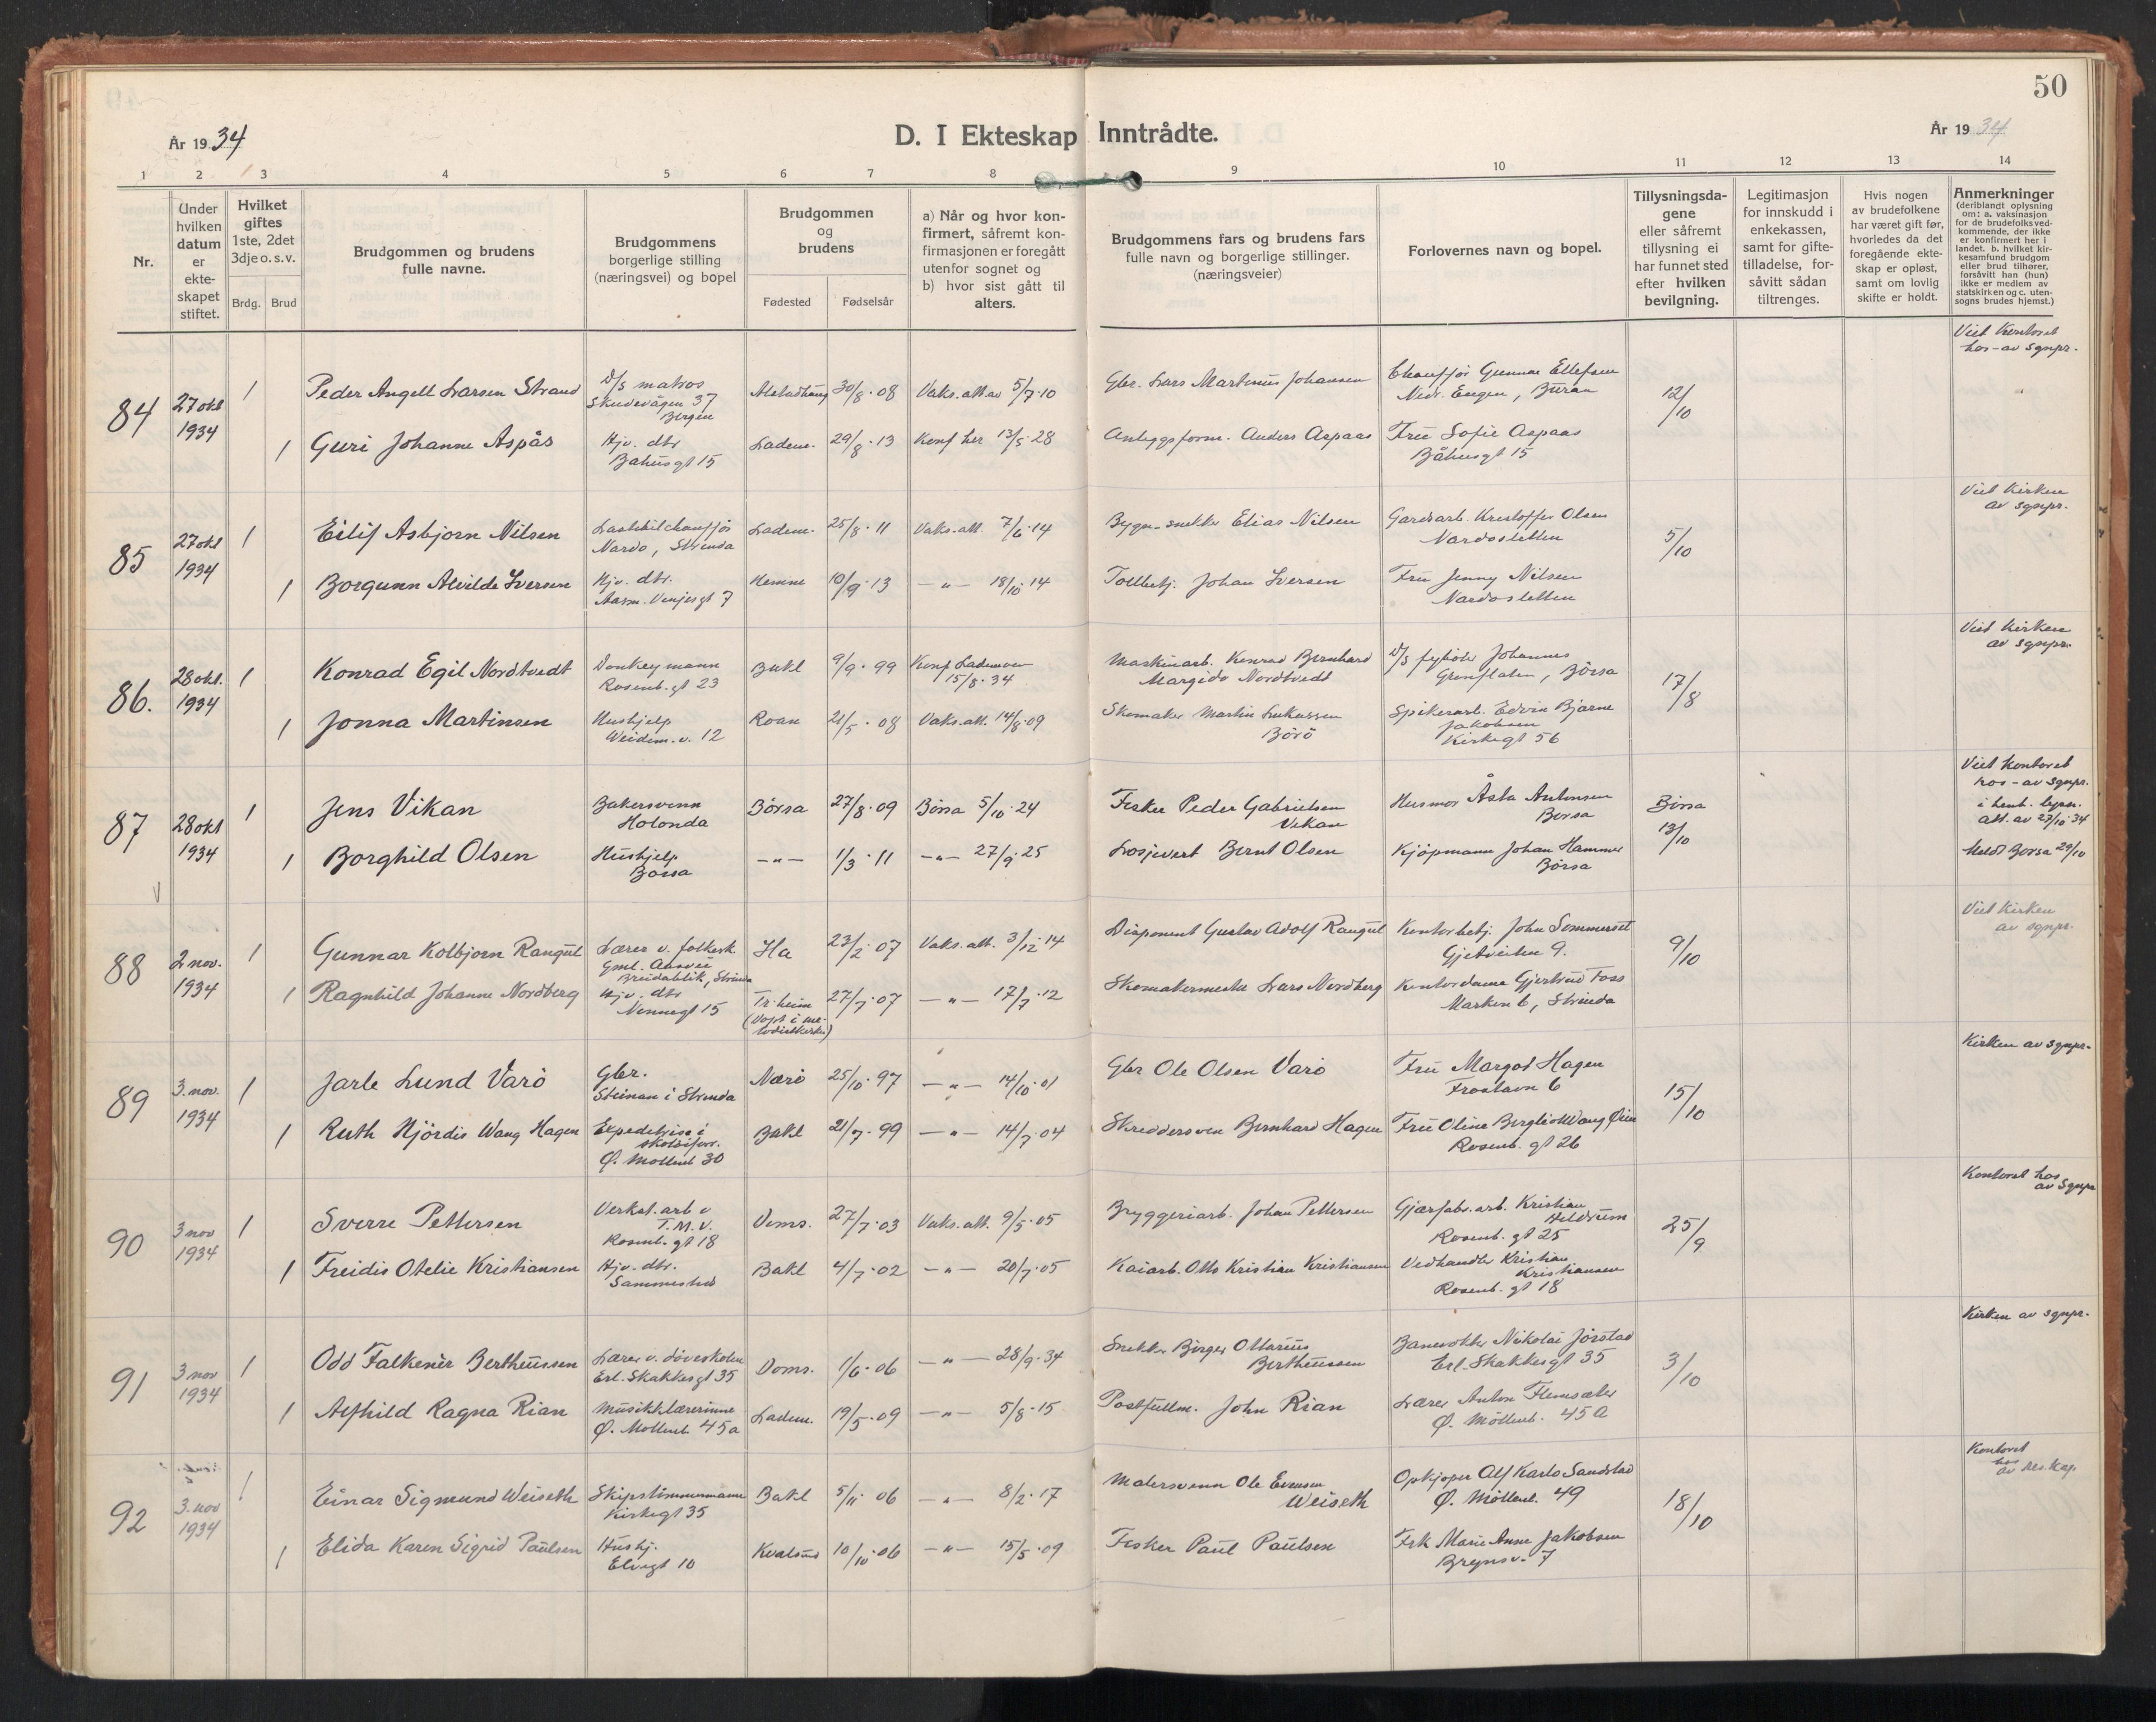 50
År 19 34
D. I Ekteskap Inntrådte.
År 19 34
1 2 3 4 5 6 7 8 9 10 11 12 13 14
Nr.
Under hvilken datum er ekteskapet stiftet.
Hvilket giftes 1ste, 2det 3dje o. s. v.
Brdg. Brud
Brudgommen og brudens fulle navne.
Brudgommens borgerlige stilling (næringsvei) og bopel
Brudgommen og brudens
Fødested Fødselsår
a) Når og hvor konfirmert, såfremt konfirmasjonen er foregått utenfor sognet og
b) hvor sist gått til alters.
Brudgommens fars og brudens fars fulle navn og borgerlige stillinger. (næringsveier)
Forlovernes navn og bopel.
Tillysningsdagene eller såfremt tillysning ei har funnet sted efter hvilken bevilgning.
Legitimasjon for innskudd i enkekassen, samt for giftetilladelse, forsåvitt sådan tiltrenges.
Hvis nogen av brudefolkene har været gift før, hvorledes da det foregående ekteskap er opløst, samt om lovlig skifte er holdt.
Anmerkninger
(deriblandt oplysning om: a. vaksinasjon for de brudefolksvedkommende, der ikke er konfirmert her i landet. b. hvilket kirkesamfund brudgom eller brud tilhører, forsåvitt han (hun) ikke er medlem av statskirken og c. utensogns brudes hjemst.)
84 27 okt 1934
1 Peder Angell Larsen Strand
D/s matros Skudevågen 37 Bergen
Alstadhaug 30/8·08 Vaks. att av 5/7·10
Gbr. Lars Martinus Johansen
Chauffør Gunnar Ellefsen
Nedr. Engen, Buran
12/10
Viet Kontoret hos - av sgnpr.
1 Guri Johanne Aspås
Hjv. dtr Bahusgt 15
Ladem. 29/8·13 Konf her 13/5·28
Anleggsform. Anders Aspaas
Fru Sofie Aspaas
Båhusgt 15
85 27 okt 1934
1 Eilif Asbjørn Nilsen
Lastebilchauffør
Nardo, Strinda
Ladem. 25/8·11 Vaks. att. 7/6·14
Bygn. snekker Elias Nilsen
Gardsarb. Kristoffer Olsen
Nardosletten
5/10
Viet Kirken av sgnpr.
1 Borgunn Alvilde Iversen
Hjv. dtr.
Aasm. Vinjesgt 7
Hemne 10/9·13 —"— 18/10·14
Tollbetj. Johan Iversen
Fru Jenny Nilsen
Nardosletten
86. 28 okt. 1934
1 Konrad Egil Nordtvedt
Donkeymann
Rosenb. gt 23
Bakl 9/9·99 Konf Lademoen 15/8·34
Maskinarb. Konrad Bernhard
Margido Nordtvedt
D/s fyrbøter Johannes
Grønflaten, Börsa
17/8
Viet Kirken av sgnpr.
1 Jonna Martinsen
Hushjelp
Weidem. v. 12
Roan 21/5·08 Vaks. att. 14/8·09
Skomaker Martin Lukassen
Börö
Spikerarb. Edvin Bjarne
Jakobsen
Kirkegt 56
87 28 okt 1934
1 Jens Vikan
Bakersvenn
Hølonda
Börsa 27/8·09 Börsa 5/10·24
Fisker Peder Gabrielsen
Vikan
Husmor Åsta Antonsen
Börsa
Börsa 13/10
Viet Kontoret
hos - av sgnpr.
i henh. lysn.
att. av 27/10 34
Meldt Børsa 29/10
1 Borghild Olsen
Hushjelp
Börsa
—"— 1/3·11 —"— 27/9·25
Losjevert Bernt Olsen
Kjöpmann Johan Hammer
Börsa
88 2 nov. 1934
1 Gunnar Kolbjørn Rangul
Lærer v. folkesk.
Gml. Aasvei
Breidablik, Strinda
Ha 23/2·07 Vaks. att. 3/12 14
Disponent Gustav Adolf Rangul
Kontorbetj. John Sommerset
Gjetveiten 9.
9/10
Viet Kirken av sgnpr.
1 Ragnhild Johanne Nordberg
Hjv. dtr
Nonnegt 15
Tr.heim (Døpt i metodistkirken)
27/7·07 —"— 17/7·12
Skomakermester Lars Nordberg
Kontordame Gjertrud Foss
Marken 6, Strinda
89 3. nov. 1934
1 Jarle Lund Varö
Gbr.
Steinan i Strinda
Nærö 25/10·97 —"— 14/10·01
Gbr Ole Olsen Varö
Fru Margot Hagen
Frostavn 6
15/10
Kirken av sgnpr.
1 Ruth Hjördis Wang Hagen
Expeditrise i
skotøiforr.
Ø. Mollenb 30
Bakl 21/7·99 —"— 14/7·04
Skreddersven Bernhard Hagen
Fru Oline Bergliot Wang Øien
Rosenb. gt 26
90 3 nov 1934
1 Sverre Pettersen
Verkst. arb v
T.M.V.
Rosenb. gt 18
Doms. 27/7·03 Vaks. att. 9/5·05
Bryggeriarb. Johan Pettersen
Gjærfabr. arb. Kristian
Heldrum
Rosenb. gt 25
25/9
Kontoret hos av sgnpr
1 Freidis Otelie Kristiansen
Hjv. dtr.
Sammested
Bakl 4/7·02 —"— 20/7·05
Kaiarb. Otto Kristian Kristiansen
Vedhandler Kristian
Kristiansen
Rosenb. gt 18
91 3 nov 1934
1 Odd Falkenér Bertheussen
Lærer v. døveskolen
Erl. Skakkesgt 35
Doms. 1/6·06 —"— 28/9·34
Snekker Birger Ottarius
Bertheussen
Banevokter Nikolai Jörstad
Erl. Skakkesgt 35
3/10
Kirken av sgnpr.
1 Alfhild Ragna Rian
Musikklærerinne
Ø. Mollenb 45a
Ladem. 19/5·09 —"— 5/8·15
Postfullm. John Rian
Lærer Anton Flemsæter
Ø. Möllenb. 45 a
92 3. nov 1934
1 Einar Sigmund Weiseth
Skipstimmermann
Kirkegt 35
Bakl 5/11·06 —"— 8/2·17
Malersvenn Ole Evensen
Weiseth
Opkjøper Alf Karlo Sandstad
Ø. Möllenb. 49
18/10
Kontoret
hos
av res. kap.
1 Elida Karen Sigrid Paulsen
Hushj.
Elvegt 10
Kvalsund 10/10·06 —"— 15/5·09
Fisker Paul Paulsen
Frk Marie Anne Jakobsen
Brynsv. 7